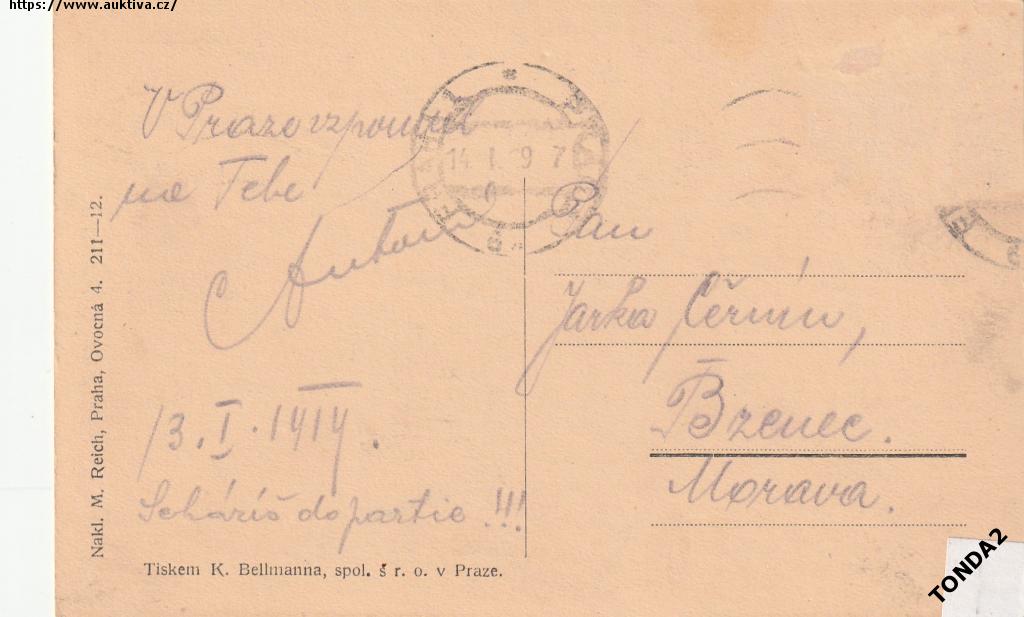 https://www.auktiva.cz/
V Praze vzpomíná
na Tebe
Antonín
13. I. 1919.
Scházíš do partie !!!
Pan
Jarka Čermín,
Bzenec.
Morava.
14. I. 19 7
Nakl. M. Reich, Praha, Ovocná 4. 211—12.
Tiskem K. Bellmanna, spol. s r. o. v Praze.
TONDA2